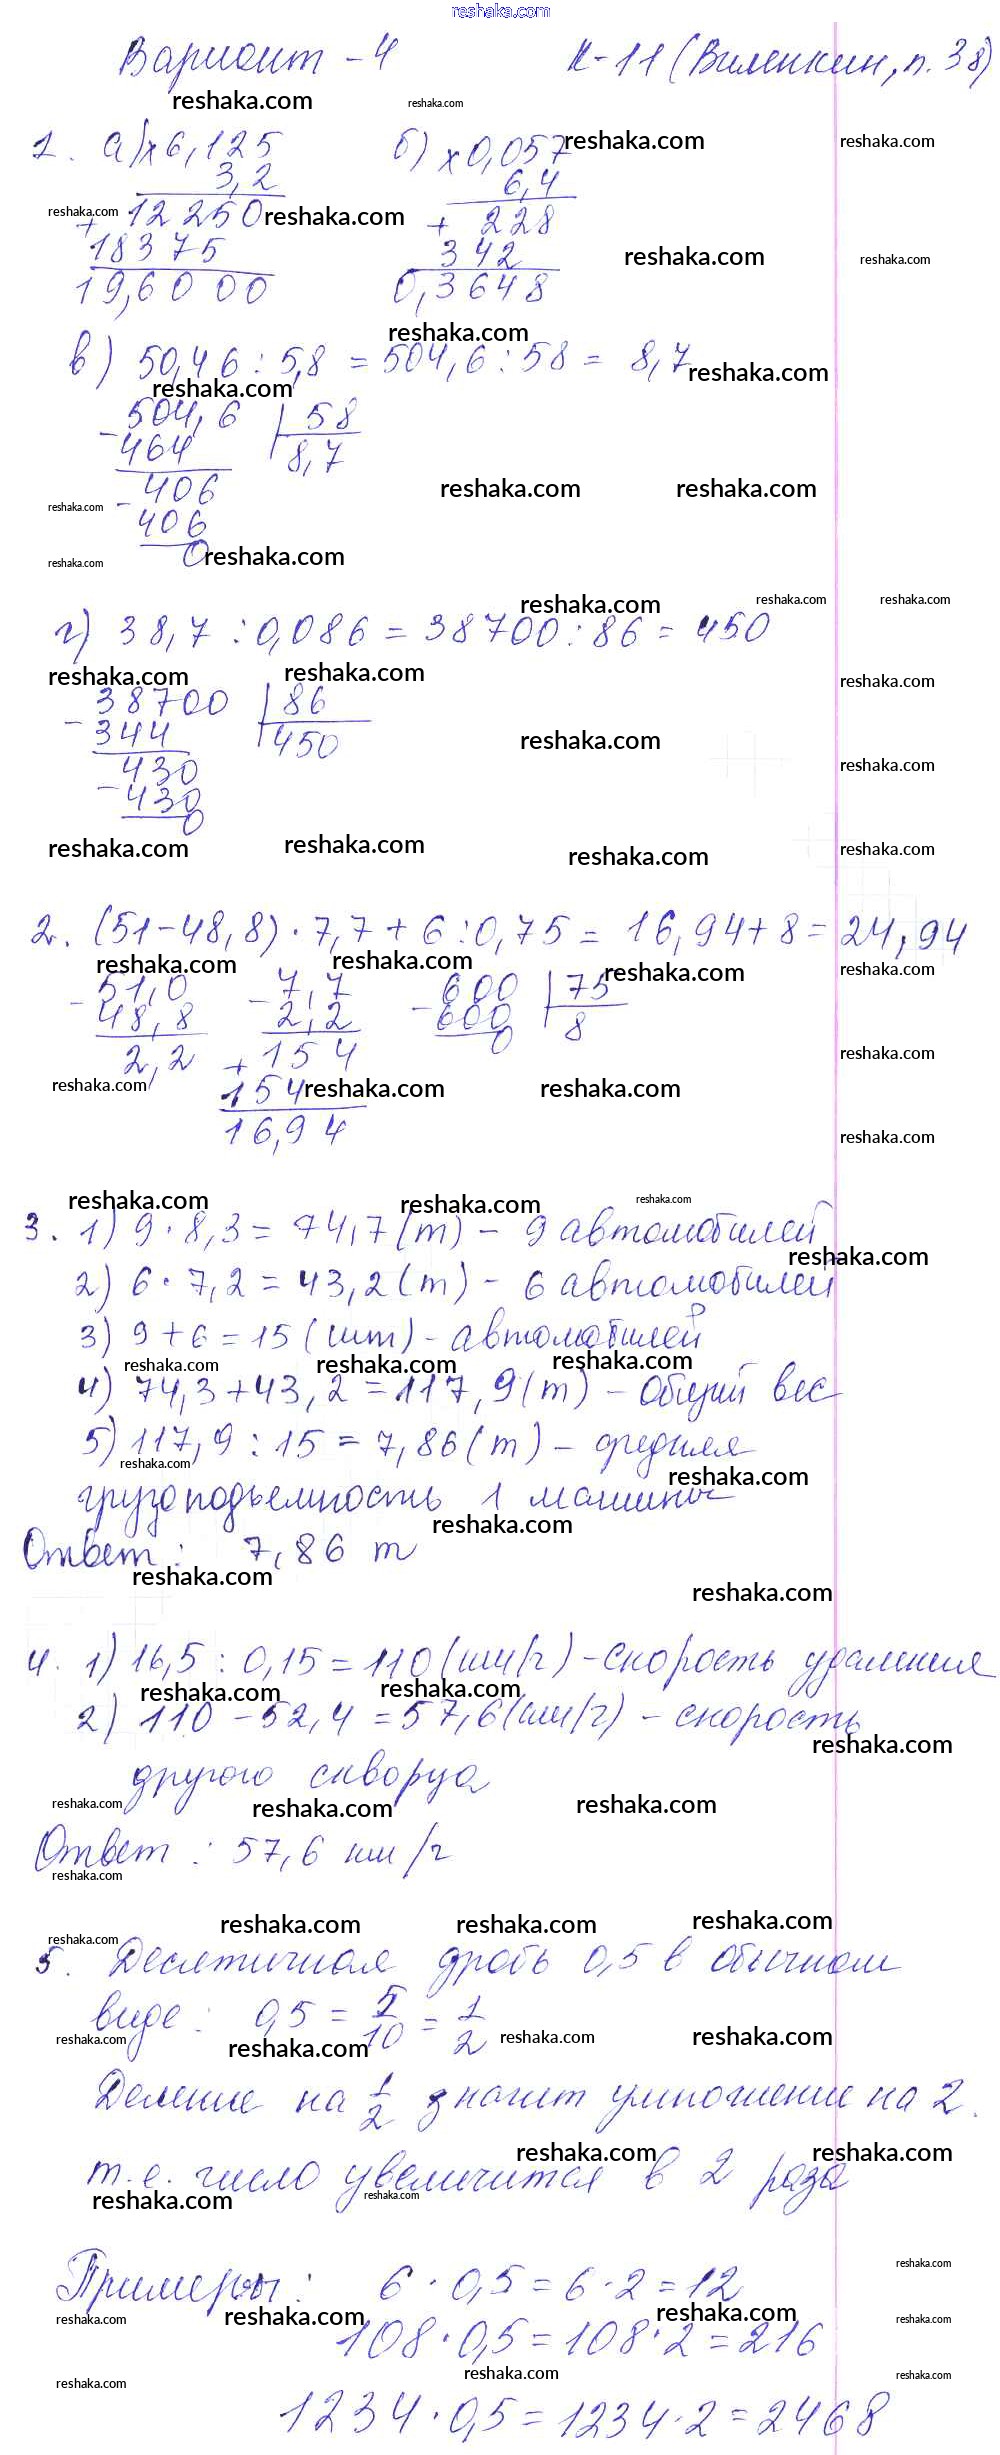 reshaka.com
Вариант - 4 К-11 (Виленкин, п. 38)
reshaka.com reshaka.com
1. а) x 6,125 б) x 0,057 reshaka.com reshaka.com
3,2 6,4
reshaka.com + 12 250 reshaka.com + 228
18375 342 reshaka.com reshaka.com
19,60 00 0,3648
reshaka.com
в) 50,46 : 5,8 = 504,6 : 58 = 8,7 reshaka.com
reshaka.com
- 504,6 58
464 8,7
- 406 reshaka.com reshaka.com
reshaka.com 406
reshaka.com 0 reshaka.com
reshaka.com reshaka.com reshaka.com
г) 38,7 : 0,086 = 38700 : 86 = 450
reshaka.com reshaka.com reshaka.com
- 38700 86
344 450 reshaka.com
- 430 reshaka.com
430
0
reshaka.com reshaka.com reshaka.com reshaka.com
2. (51-48,8) · 7,7 + 6 : 0,75 = 16,94 + 8 = 24,94
reshaka.com reshaka.com reshaka.com reshaka.com
- 51,0 - 7,7 - 600 75
48,8 2,2 600 8
2,2 + 154 0 reshaka.com
reshaka.com 154 reshaka.com reshaka.com
16,94 reshaka.com
reshaka.com reshaka.com reshaka.com
3. 1) 9 · 8,3 = 74,7 (т) - 9 автомобилей
reshaka.com
2) 6 · 7,2 = 43,2 (т) - 6 автомобилей
3) 9 + 6 = 15 (шт) - автомобилей
reshaka.com reshaka.com reshaka.com
4) 74,3 + 43,2 = 117,9 (т) - общий вес
5) 117,9 : 15 = 7,86 (т) - средняя
reshaka.com reshaka.com
грузоподъемность 1 машины
reshaka.com
Ответ: 7,86 т
reshaka.com reshaka.com
4. 1) 16,5 : 0,15 = 110 (км/г) - скорость удаления
reshaka.com reshaka.com
2) 110 - 52,4 = 57,6 (км/г) - скорость
reshaka.com
другого скворца
reshaka.com reshaka.com reshaka.com
Ответ: 57,6 км/г
reshaka.com
reshaka.com reshaka.com reshaka.com
reshaka.com
5. Десятичная дробь 0,5 в обычном
виде: 0,5 = 5/10 = 1/2
reshaka.com reshaka.com reshaka.com reshaka.com
Деление на 1/2 значит умножение на 2.
reshaka.com reshaka.com
т.е. число увеличится в 2 раза
reshaka.com reshaka.com
reshaka.com
Примеры: 6 · 0,5 = 6 · 2 = 12
reshaka.com reshaka.com reshaka.com reshaka.com
108 · 0,5 = 108 · 2 = 216
reshaka.com reshaka.com reshaka.com
1234 · 0,5 = 1234 · 2 = 2468